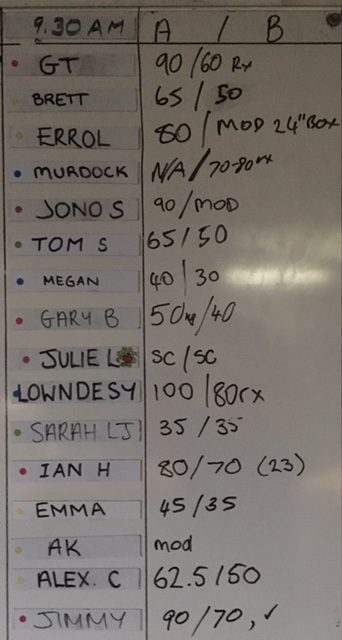 9.30 AM A / B
GT 90/60 Rx
BRETT 65 / 50
ERROL 80 / MOD 24" BOX
MURDOCK N/A / 70-80rx
JONO S 90/MOD
TOM S 65/50
MEGAN 40 | 30
GARY B 50kg/40
JULIE L SC/SC
LOWNDESY 100 | 80rx
SARAH LJ 35 / 35
IAN H 80/70 (23)
EMMA 45/35
AK mod
ALEX. C 62.5/50
JIMMY 90/70, ✓